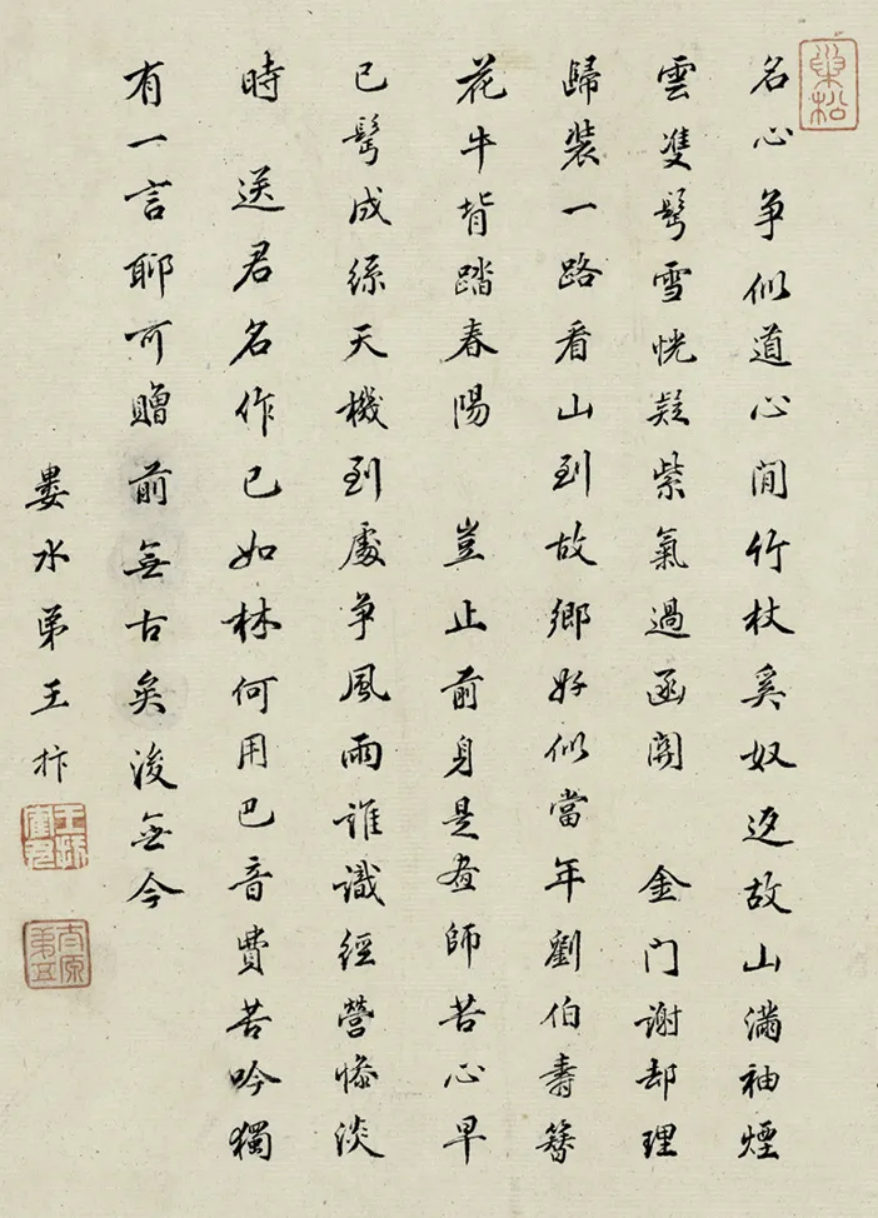 巢松
名心争似道心閒竹杖奚奴返故山滿袖煙
雲雙鬢雪恍疑紫氣過函關　金门謝却理
歸装一路看山到故鄉好似當年劉伯壽簪
花牛背踏春陽　豈止前身是畫師苦心早
已鬢成絲天機到處争風雨誰識經營惨淡
時　送君名作已如林何用巴音費苦吟獨
有一言聊可贈前無古矣後無今
婁水弟王抃
太原弟五